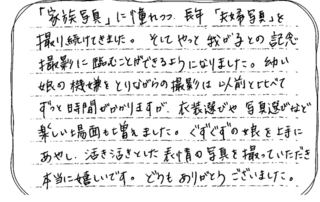 「家族写真」に憧れつつ、長年「夫婦写真」を
撮り続けてきました。そしてやっと我が子との記念
撮影に臨むことができるようになりました。幼い
娘の機嫌をとりながらの撮影は以前と比べて
ずっと時間がかかりますが、衣装選びや写真選びなど
楽しい場面も増えました。ぐずぐずの娘を上手に
あやし、活き活きとした表情の写真を撮っていただき
本当に嬉しいです。どうもありがとうございました。